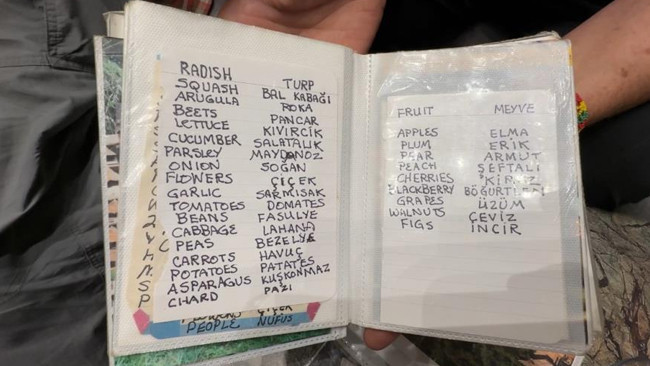 RADISH TURP
SQUASH BAL KABAĞI
ARUGULA ROKA
BEETS PANCAR
LETTUCE KIVIRCIK
CUCUMBER SALATALIK
PARSLEY MAYDANOZ
ONION SOĞAN
FLOWERS ÇİÇEK
GARLIC SARMISAK
TOMATOES DOMATES
BEANS FASULYE
CABBAGE LAHANA
PEAS BEZELYE
CARROTS HAVUÇ
POTATOES PATATES
ASPARAGUS KUŞKONMAZ
CHARD PAZI
PEOPLE NUFUS
FRUIT MEYVE
APPLES ELMA
PLUM ERIK
PEAR ARMUT
PEACH ŞEFTALİ
CHERRIES
BLACKBERRY
GRAPES ÜZÜM
WALNUTS ÇEVİZ
FIGS INCIR